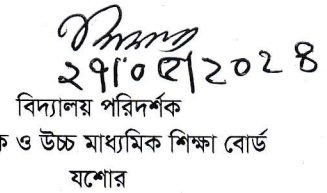 ২৭/০৫/২০২৪
বিদ্যালয় পরিদর্শক
ক ও উচ্চ মাধ্যমিক শিক্ষা বোর্ড
যশোর